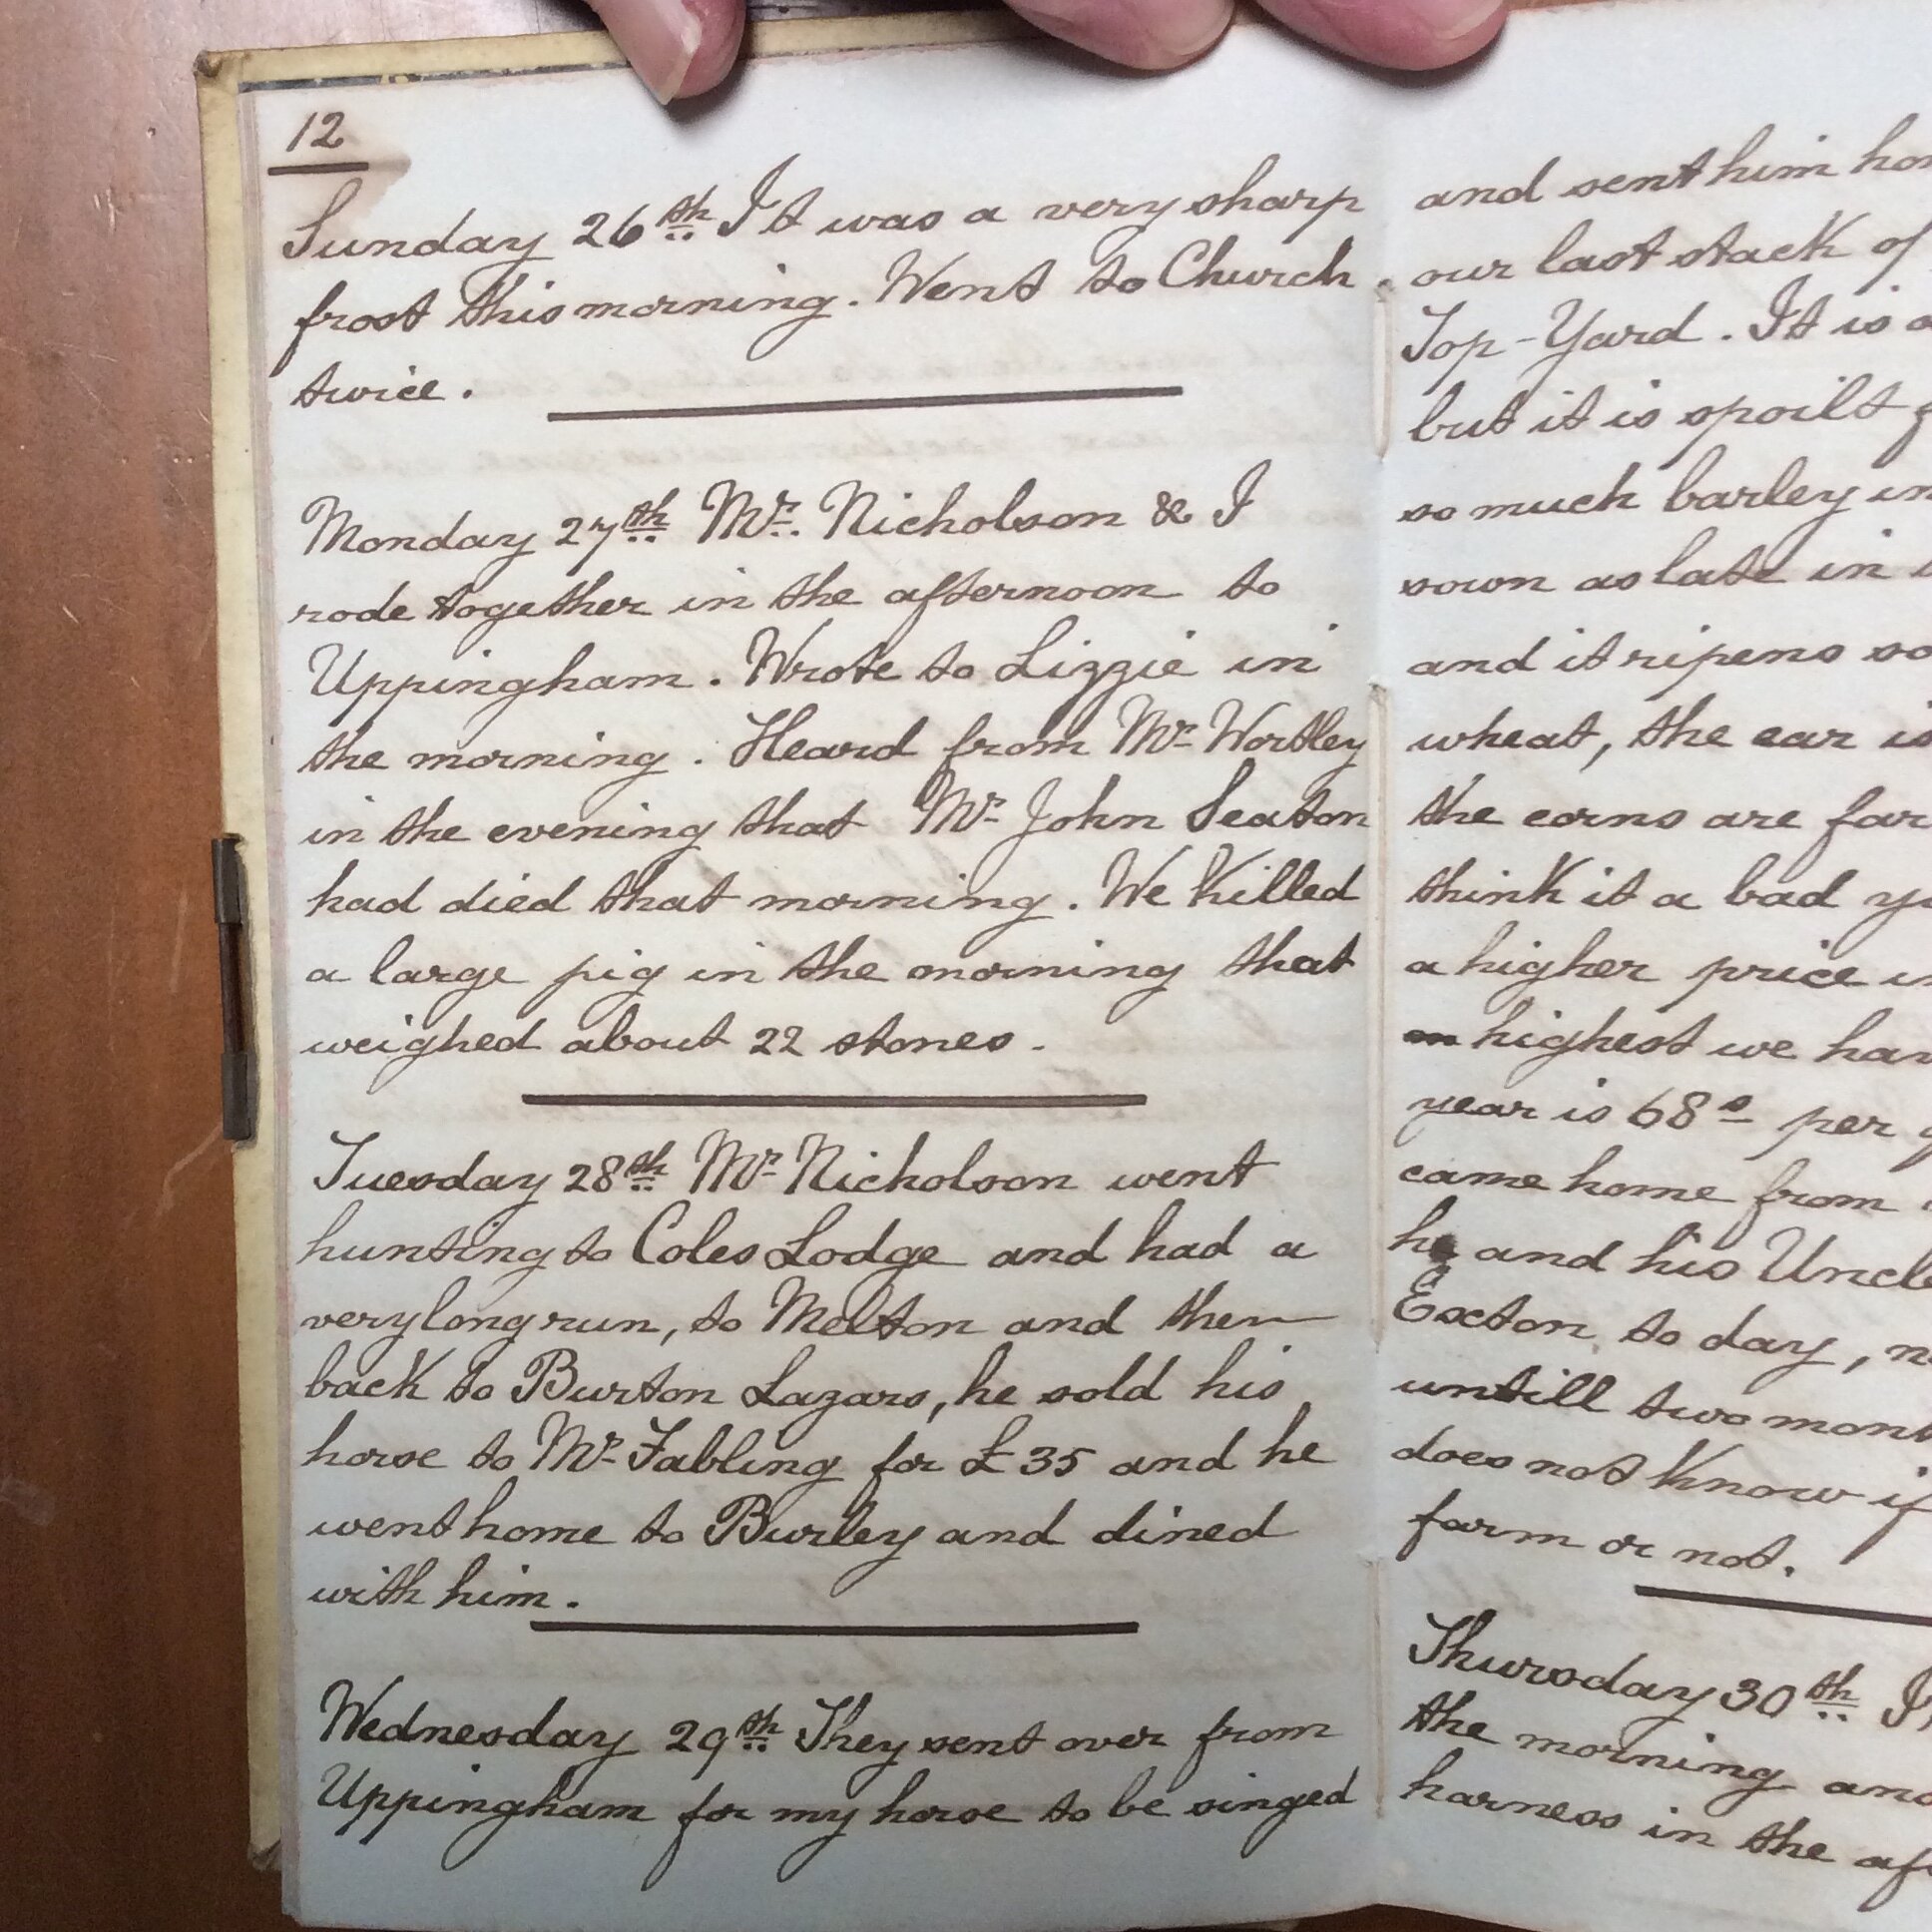 12
Sunday 26th It was a very sharp
frost this morning. Went to Church
twice.
Monday 27th Mr. Nicholson & I
rode together in the afternoon to
Uppingham. Wrote to Lizzie in
the morning. Heard from Mr Wortley
in the evening that Mr John Seaton
had died that morning. We Killed
a large pig in the morning that
weighed about 22 stones.
Tuesday 28th Mr Nicholson went
hunting to Coles Lodge and had a
very long run, to Melton and then
back to Burton Lazars, he sold his
horse to Mr Fabling for £35 and he
went home to Burley and dined
with him.
Wednesday 29th They sent over from
Uppingham for my horse to be singed
and sent him
our last stack of
Top-Yard. It is
but it is spoilt
so much barley
sown as late in
and it ripens
wheat, the ear
the corns are far
think it a bad
a higher price
highest we
year is 68s per
came home from
he and his
Exton to day,
untill two
does not Know if
farm or not.
Thursday 30th
the morning
harness in the